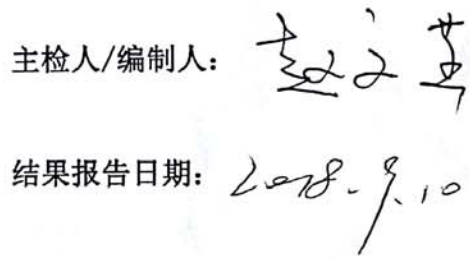 主检人/编制人：赵文
结果报告日期：2018.9.10